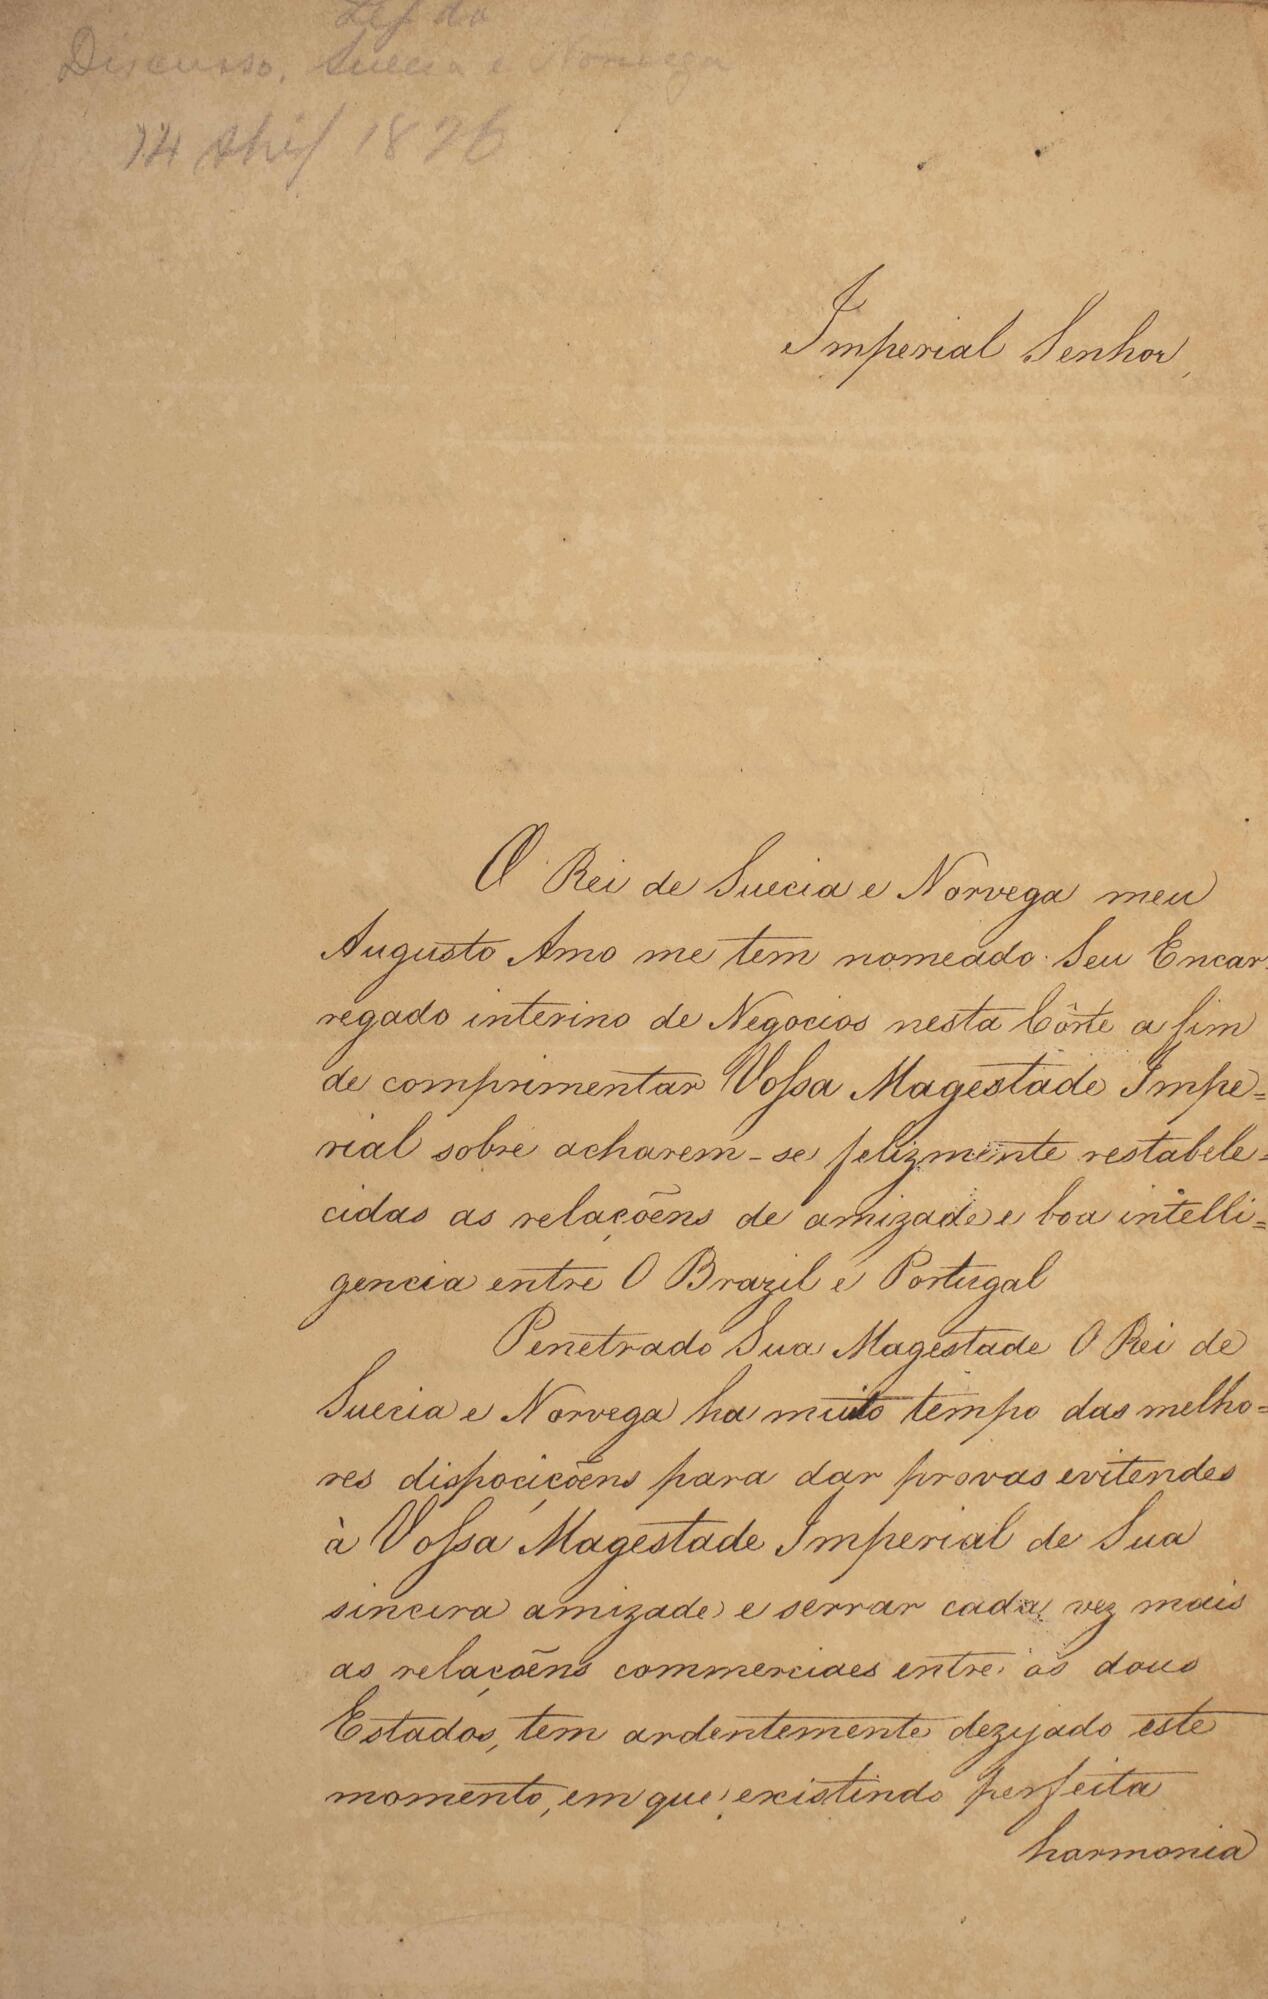 Discurso, Suecia e Noruega
14 Abril 1826
Imperial Senhor,
O Rei de Suecia e Norvega meu
Augusto Amo me tem nomeado Seu Encar-
regado interino de Negocios nesta Côrte a fim
de comprimentar Vossa Magestade Impe=
rial sobre acharem-se felizmente restabele=
cidas as relaçõens de amizade e boa intelli=
gencia entre O Brazil e Portugal
Penetrado Sua Magestade O Rei de
Suecia e Norvega ha muito tempo das melho=
res dispociçõens para dar provas evitendes
à Vossa Magestade Imperial de Sua
sincera amizade e serrar cada vez mais
as relaçõens commerciaes entre os dous
Estados, tem ardentemente dezejado este
momento, em que existindo perfeita
harmonia